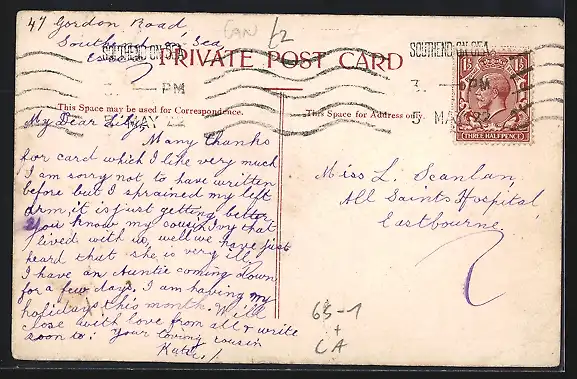 47 Gordon Road
Southend on Sea
Essex
CAN
/2
SOUTHEND-ON-SEA
PM
3 MAY 22
SOUTHEND-ON-SEA
3. PM
3 MAY 22
PRIVATE POST CARD
This Space may be used for Correspondence.
This Space for Address only.
1½ 1½
THREE HALFPENCE
My Dear Lily,
Many thanks
for card which I like very much
I am sorry not to have written
before but I sprained my left
arm, it is just getting better
You know my cousin Ivy that
lived with us, well we have just
heard that she is very ill,
I have an Auntie coming down
for a few days. I am having my
holidays this month. Will
close with love from all & write
soon to. Your loving cousin
Kate.
Miss L. Scanlan,
All Saints Hospital
Eastbourne
63-1
+
CA